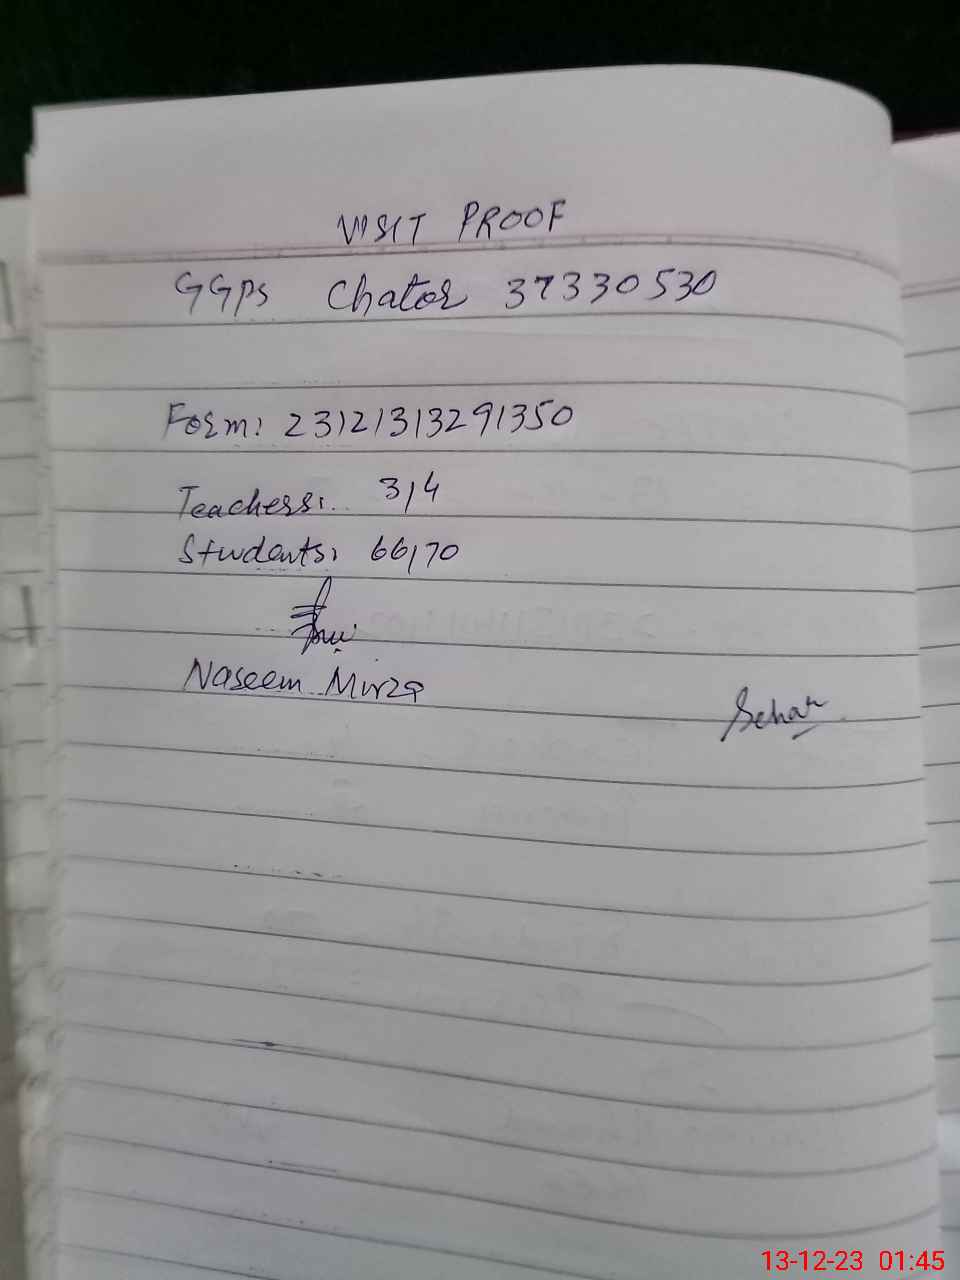 VISIT PROOF
GGPS Chator 37330530
Form: 23121313291350
Teachers: 3/4
Students: 66/70
Naseem Mirza
Sehar
13-12-23 01:45